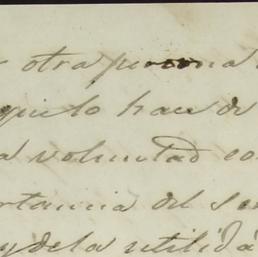 otra persona
que lo han de
a voluntad co
rtancia del se
y de la utilidá